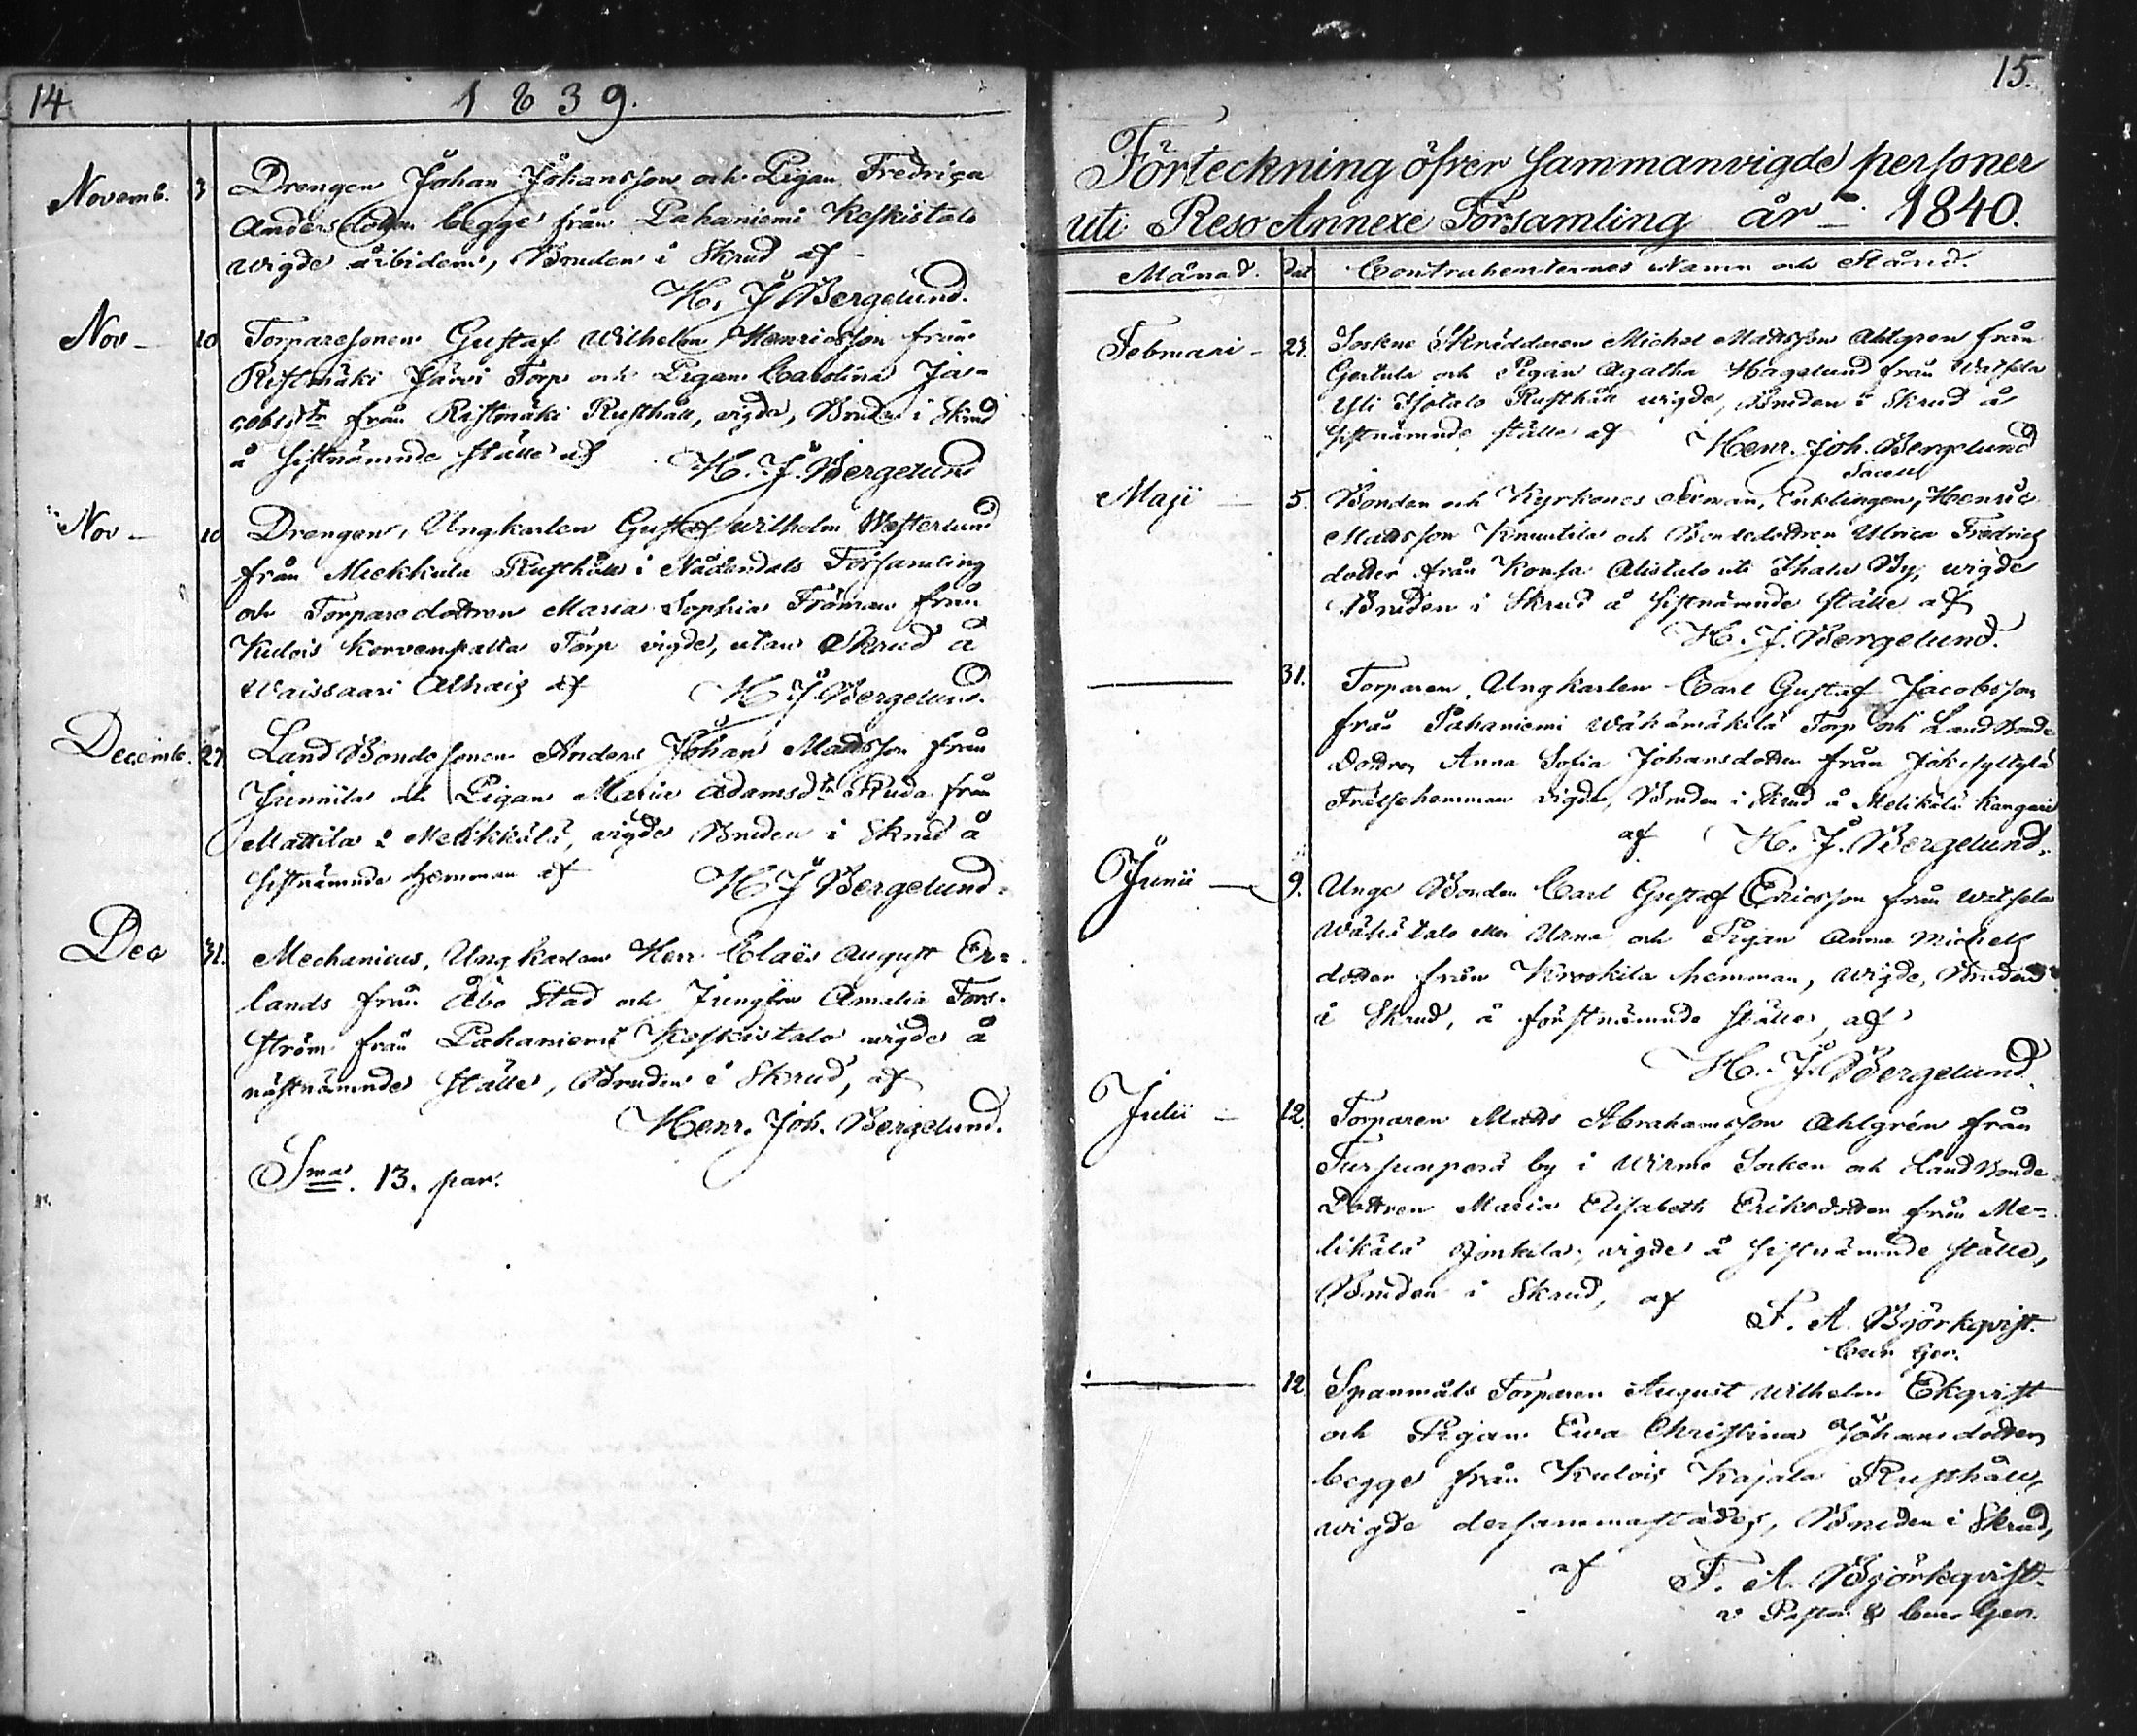 14
1839.
Novemb. 3 Drengen Johan Johansson och Pigan Fredrica
Andersdotter begge från Pahaniemi Keskistalo
wigde åibidem, Bruden i Skrud af
H. J. Bergelund.
Nov — 10 Torparesonen Gustaf Wilhelm Henricsson från
Ristimäki Järvi Torp och Pigan Carolina Ja-
cobsdtr från Ristimäki Rusthåll, vigde, Bruden i Skrud
å sistnämnde ställe af H. J. Bergelund
Nov — 10 Drengen, Ungkarlen Gustaf Wilhelm Westerlund
från Miekkula Rusthåll i Nådendals Församling
och Torparedottren Maria Sophia Fröman från
Kulois Korvenpalta Torp vigde, utan Skrud å
Waissaari Alhais af H. J. Bergelund.
Decemb. 27 LandBondesonen Anders Johan Mattsson från
Junnila och Pigan Maria Adamsdtr Ruda från
Mattila i Melikkälä, vigde Bruden i Skrud å
sistnämnde Hemman af H J Bergelund.
Dec 31. Mechanicus, Ungkarlen Herr Claës August Er-
lands från Åbo Stad och Jungfru Amalia Fors-
ström från Pahaniemi Keskistalo vigde å
nästnämnde ställe, Bruden i Skrud, af
Henr. Joh. Bergelund.
Sma. 13. par.
15.
Förteckning öfver sammanvigde personer
uti Reso Annexe Församling år 1840.
Månad. Dat. Contrahenternes Namn och Stånd.
Februari — 24. Sockne Skräddaren Michel Mattsson Ahlgren från
Gertula och Pigan Agatha Hagelund från Watsela
Yli Isotalo Rusthåll wigde, Bruden i Skrud å
sistnämnde ställe af Henr. Joh. Bergelund
Sacell
Maji — 5. Bonden och Kyrkones Sexman, Enklingen, Henric
Mattsson Knuutila och Bondedottren Ulrica Fredrics
dotter från Konsa Alistalo uti Ihala By, wigde
Bruden i Skrud å sistnämnde ställe af
H. J. Bergelund.
— 31. Torparen, Ungkarlen Carl Gustaf Jacobsson
från Pahaniemi Wähämäkilä Torp och LandBonde
Dottren Anna Sofia Johansdotter från Jokisyltylä
Frälsehemman vigde, Bruden i Skrud å Melikälä Kangari
af H. J. Bergelund.
Junii — 9. Unge Bonden Carl Gustaf Ericsson från Watsela
Wähätalo eller Urna och Pigan Anna Michels
dotter från Krookila hemman, wigde, Bruden
i Skrud, å förstnämnde ställe, af
H. J. Bergelund.
Julii — 12. Torparen Matts Abrahamsson Ahlgrén från
Tursunperä by i Wirmo Socken och LandBonde
Dottren Maria Elisabeth Eriksdotter från Me-
likälä Jonkila, vigde å sistnämnde ställe,
Bruden i Skrud, af F. A. Björkqvist.
Cur. Ger.
— 12 Spanmåls Torparen August Wilhelm Ekqvist
och Pigan Ewa Christina Johansdotter
begge från Kulois Kajala Rusthåll,
wigde dersammastädes, Bruden i Skrud,
af F. A. Björkqvist.
v Pastor & Cur. Ger.